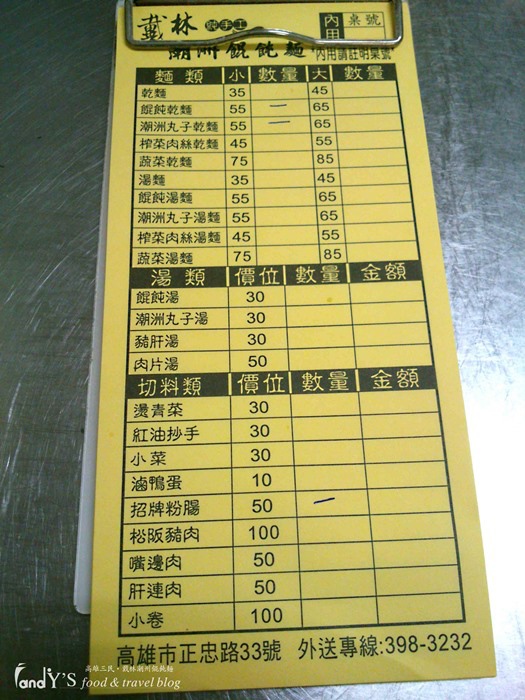 戴林 純手工 內用 桌號
潮洲餛飩麵 內用請註明桌號
麵類 小 數量 大 數量
乾麵 35 45
餛飩乾麵 55 二 65
潮洲丸子乾麵 55 一 65
榨菜肉絲乾麵 45 55
蔬菜乾麵 75 85
湯麵 35 45
餛飩湯麵 55 65
潮洲丸子湯麵 55 65
榨菜肉絲湯麵 45 55
蔬菜湯麵 75 85
湯類 價位 數量 金額
餛飩湯 30
潮洲丸子湯 30
豬肝湯 30
肉片湯 50
切料類 價位 數量 金額
燙青菜 30
紅油抄手 30
小菜 30
滷鴨蛋 10
招牌粉腸 50 一
松阪豬肉 100
嘴邊肉 50
肝連肉 50
小卷 100
高雄市正忠路33號 外送專線:398-3232
高雄三民·戴林潮州餛飩麵
andY'S food & travel blog